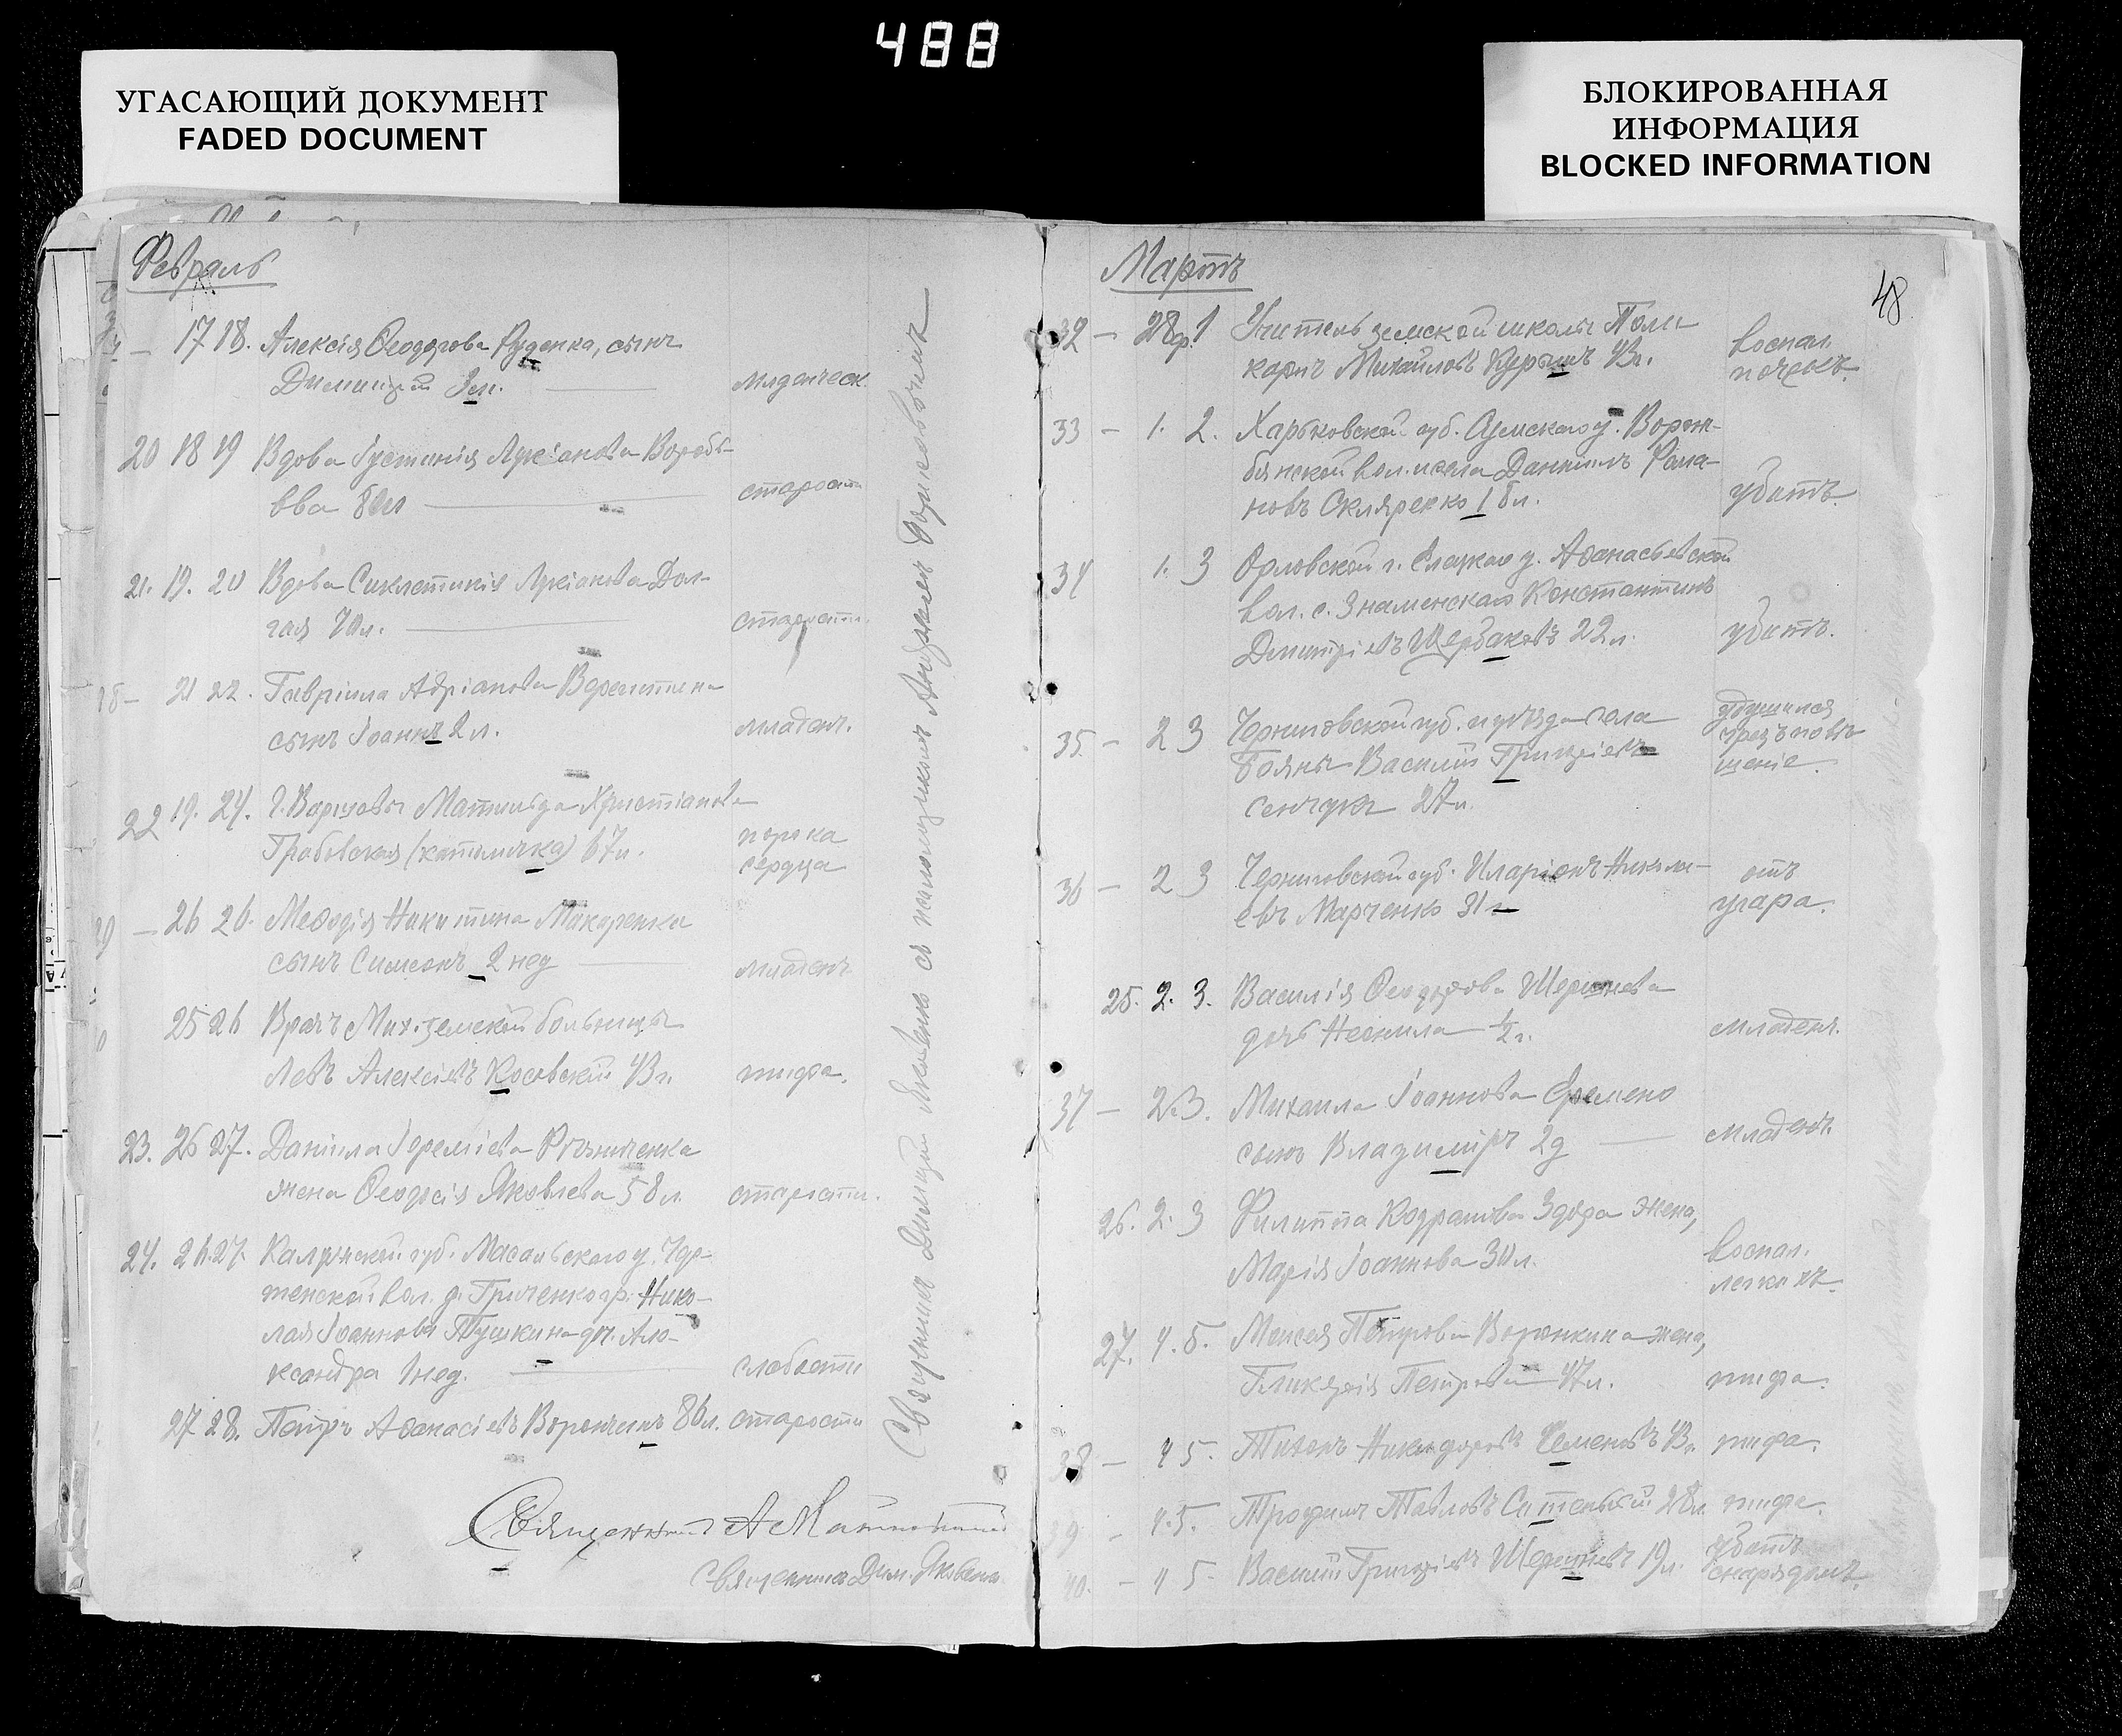 488
УГАСАЮЩИЙ ДОКУМЕНТ
FADED DOCUMENT
БЛОКИРОВАННАЯ
ИНФОРМАЦИЯ
BLOCKED INFORMATION
Февраль
17 18. Алексія Ѳеодорова Руденка, сынъ
Димитрій 3 м. младенческ.
20 18 19 Вдова Іустинія Лукіанова Воробь-
ева старости
21. 19. 20 Вдова Синклитикія Лукіанова Дол-
гая 70 л. старости.
18 – 21 22. Гавріила Адріанова
сынъ Іоаннъ 2 л. младен.
22 19. 24. г. Варшавы Матильда Христіанова
Грабовская (католичка) 67 л. порока
сердца
– 26 26. Меѳодія Никитина Макаренка
сынъ Симеонъ 2 нед младенч.
25 26 Врачъ земской больницы
Левъ Алексіевъ Косовскій 43 г. тифа.
23. 26 27. Даніила Іереміева Резниченка
жена Ѳеодосія Яковлева 58 л. старости.
24. 26. 27. Калужской губ. Масальскаго у. Чер-
тенской вол. д. гр. Нико-
лая Іоаннова Пушкина доч. Але-
ксандра 1 нед. слабости
27 28. Петръ Аѳанасіевъ 86 л. старости
Священникъ А
Священникъ Дим. Яковенко
Священникъ Димитрій Яковенко съ псаломщикомъ Андреемъ
Мартъ
48
32 – 28 ф. 1 Учитель земской школы Поли-
карпъ Михайловъ 43 г. воспал.
почекъ.
33 – 1. 2. Харьковской губ. Сумскаго у. Ворож-
бянской вол. и села Даніилъ Рома-
новъ Скляренко 18 л. убитъ.
34 1. 3 Орловской г. Елецкаго у. Аѳанасьевской
вол. с. Знаменскаго Константинъ
Димитріевъ Щербаковъ 22 л. убитъ.
35 – 2 3 Черниговской губ. и уѣзда села
Бояны Василій Григоріевъ
Сенчукъ 27 л. удушился
чрезъ повѣ-
шеніе.
36 – 2 3 Черниговской губ. Иларіонъ Никола-
евъ Марченко 31 г. отъ
угара.
25. 2. 3. Василія Ѳеодорова
дочь Неонила ½ г. младен.
37 – 2. 3. Михаила Іоаннова Еремено
сынъ Владиміръ 2 д младенч.
26. 2. 3 Филиппа Кодратова Здора жена,
Марія Іоаннова 30 л. воспал.
легкихъ.
27. 4. 5. Моисея Петрова жена,
Гликерія Петрова 47 л. тифа.
38 – 4 5. Тихонъ Никифоровъ Семеновъ 43 г. тифа.
39 – 4. 5. Трофимъ Павловъ 28 л. тифа.
40. – 4 5. Василій Григоріевъ 19 л. убитъ
снарядомъ.